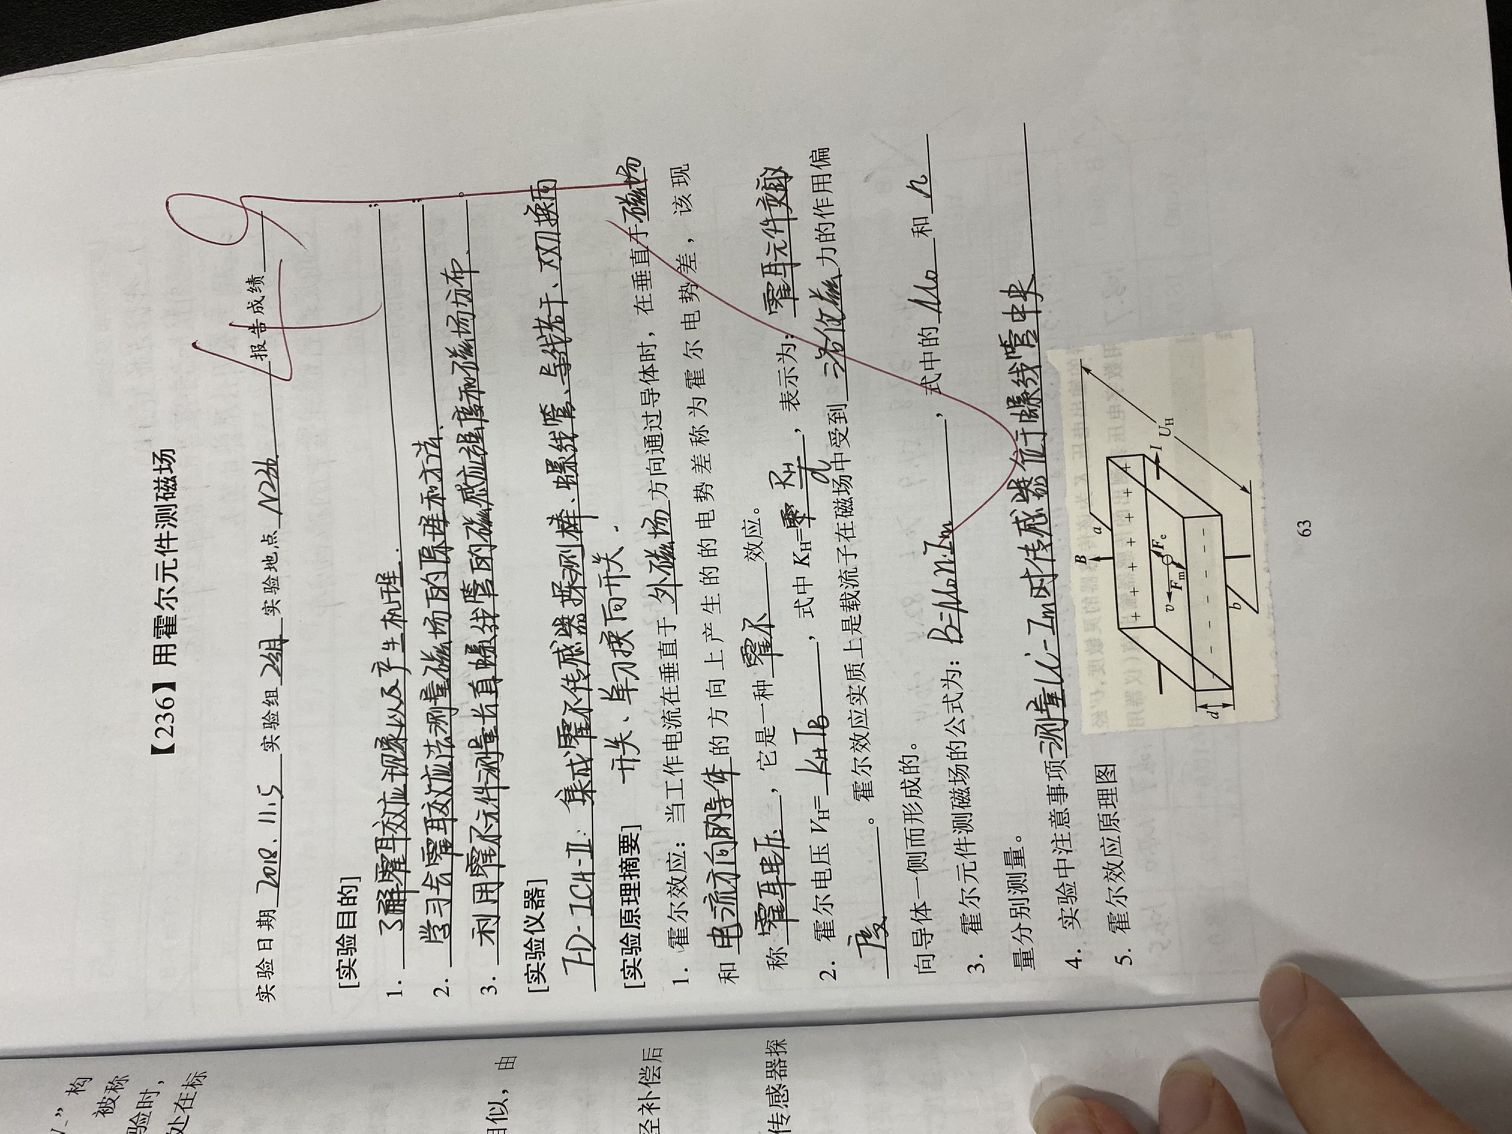 V_” 构
被称
验时，
处在标
相似，由
经补偿后
传感器探
【236】用霍尔元件测磁场
49
实验日期 2018.11.5 实验组 2组 实验地点 N236 报告成绩
[实验目的]
1. 了解霍耳效应现象以及产生机理. ;
2. 学习会霍耳效应法测量磁场的原理和方法. ;
3. 利用霍尔元件测量长直螺线管的磁感应强度和磁场分布. 。
[实验仪器]
FD-ICH-II: 集成霍尔传感器探测棒、螺线管、导线若干、双刀换向
开关、单刀换向开关.
[实验原理摘要]
1. 霍尔效应：当工作电流在垂直于 外磁场 方向通过导体时，在垂直于 磁场
和 电流方向的导体 的方向上产生的的电势差称为霍尔电势差，该现
称 霍耳电压 ，它是一种 霍尔 效应。
2. 霍尔电压 VH= KHIB ，式中 KH= RH/d ，表示为: 霍耳元件灵敏
度 。霍尔效应实质上是载流子在磁场中受到 洛伦兹 力的作用偏
向导体一侧而形成的。
3. 霍尔元件测磁场的公式为: B=μ0n·Im ，式中的 μ0 和 n
量分别测量。
4. 实验中注意事项 测量U'-Im时传感器位于螺线管中央
5. 霍尔效应原理图
B
a
+ + + + + + +
Fe
v
Fm
I
UH
d
- - - - - - -
b
63